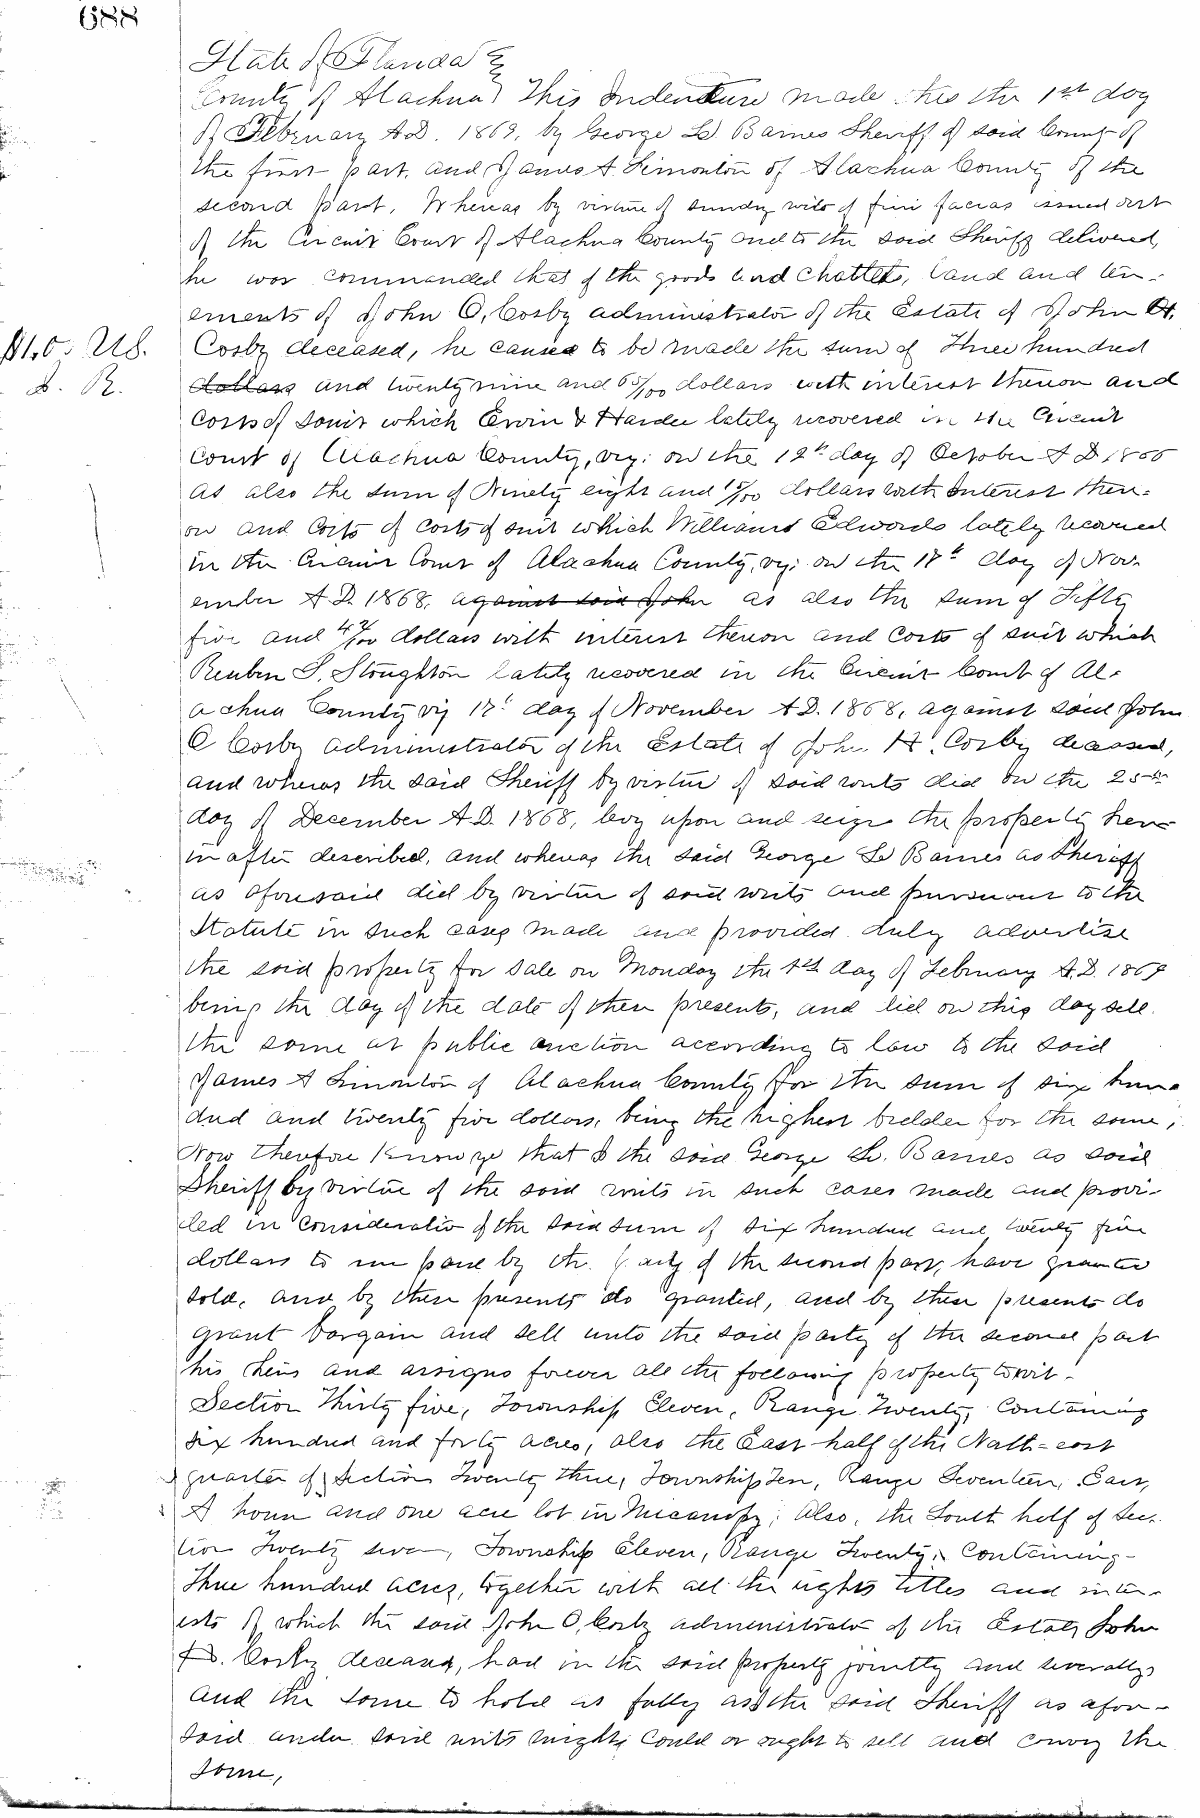 688
State of Florida
County of Alachua } This Indenture made this the 1st day
of February A.D. 1869, by George L Barnes Sheriff of said County of
the first part, and James A. Simonton of Alachua County of the
second part. Whereas by virtue of sundry writs of fini facias issued out
of the Circuit Court of Alachua County and to the said Sheriff delivered,
he was commanded that of the goods and chattels, land and ten-
ements of John O. Cosby administrator of the Estate of John H.
$1.0. U.S.
I. R.
Cosby deceased, he caused to be made the sum of Three hundred
dollars and twenty nine and 65/100 dollars with interest thereon and
costs of suit which Ervin & Hardee lately recovered in the Circuit
Court of Alachua County, viz: on the 12th day of October A D 1866
as also the sum of Ninety eight and 15/100 dollars with interest there-
on and costs of costs of suit which Williams Edwards lately recovered
in the Circuit Court of Alachua County, viz: on the 17th day of Nov-
ember A.D. 1868, against said John as also the sum of Fifty
five and 47/100 dollars with interest thereon and costs of suit which
Reuben S. Stoughton lately recovered in the Circuit Court of Al-
achua County viz 17th day of November A.D. 1868, against said John
O Cosby administrator of the Estate of John H. Cosby deceased,
and whereas the said Sheriff by virtue of said writs did on the 25th
day of December A.D. 1868, levy upon and seize the property here-
in after described, and whereas the said George L Barnes as Sheriff
as aforesaid did by virtue of said writs and pursuant to the
Statute in such cases made and provided duly advertise
the said property for sale on Monday the 1st day of February A.D. 1869
being the day of the date of these presents, and did on this day sell
the same at public auction according to law to the said
James A Simonton of Alachua County for the sum of six hun-
dred and twenty five dollars, being the highest bidder for the same;
Now therefore Know ye that I the said George L. Barnes as said
Sheriff by virtue of the said writs in such cases made and provi-
ded in consideration of the said sum of six hundred and twenty five
dollars to me paid by the party of the second part, have granted
sold, and by these presents do granted, and by these presents do
grant bargain and sell unto the said party of the second part
his heirs and assigns forever all the following property towit-
Section Thirty five, Township Eleven, Range Twenty, Containing
six hundred and forty acres, also the East half of the North-east
quarter of Section Twenty three, Township Ten, Range Seventeen, East,
A house and one acre lot in Micanopy; Also, the South half of Sec-
tion Twenty seven, Township Eleven, Range Twenty, Containing-
Three hundred acres, together with all the rights titles and inter-
ests of which the said John O. Cosby administrator of the Estate John
H. Cosby deceased, had in the said property jointly and severally
and the same to hold as fully as the said Sheriff as afore-
said under said writs might, could or ought to sell and convey the
same,